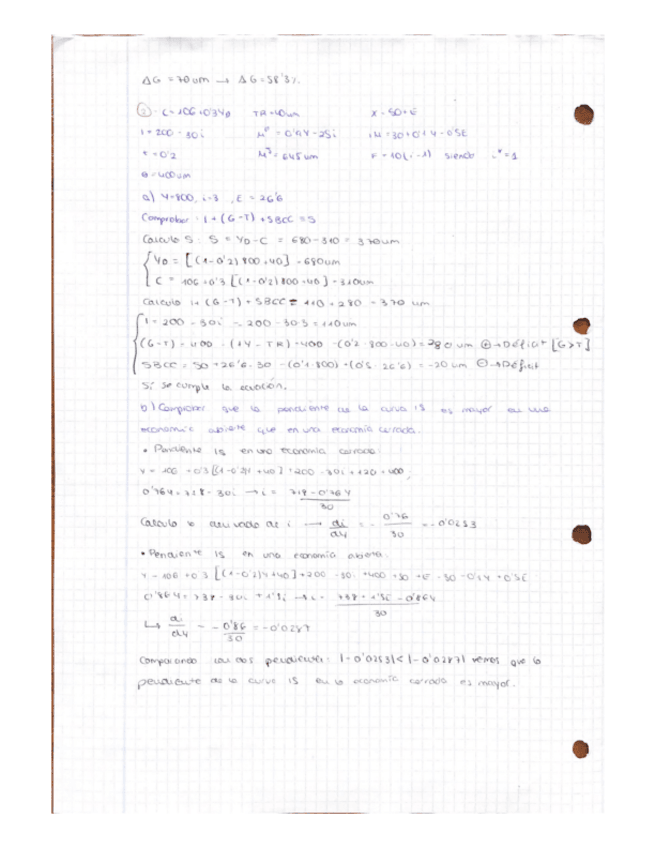 ΔG = 70um → ΔG = 58'3%.
② · C = 106 + 0'3YD TR = 40um X = 50 + E
I = 200 - 30i = 0'4Y - 25i IM = 30 + 0'1Y - 0'5E
t = 0'2 = 645um F = 10(i - 1) siendo i* = 1
G = 400um
a) Y=800, i=3, E = 26'6
Comprobar: I + (G-T) + SBCC = S
Calculo S: S = YD - C = 680 - 310 = 370um
YD = [(1-0'2)800 + 40] = 680um
C = 106 + 0'3 [(1-0'2)800 + 40] = 310um
Calculo I + (G-T) + SBCC = 110 + 280 = 370 um
I = 200 - 30i = 200 - 30·3 = 110um
(G-T) = 400 - (tY - TR) = 400 - (0'2·800-40) = 280um ⊕→Déficit [G>T]
SBCC = 50 + 26'6 - 30 - (0'1·800) + (0'5·26'6) = -20um ⊖→Déficit
Sí se cumple la ecuación.
b) Comprobar que la pendiente de la curva IS es mayor en una
economía abierta que en una economía cerrada.
• Pendiente IS en una economía cerrada:
Y = 106 + 0'3[(1-0'2)Y + 40] + 200 - 30i + 400
0'76Y = 718 - 30i → i = 718 - 0'76Y / 30
Calculo la derivada de i → di/dY = - 0'76/30 = -0'0253
• Pendiente IS en una economía abierta:
Y = 106 + 0'3 [(1-0'2)Y + 40] + 200 - 30i + 400 + 50 + E - 30 - 0'1Y + 0'5E
0'86Y = 738 - 30i + 1'5E → i = 738 + 1'5E - 0'86Y / 30
↳ di/dY = - 0'86/30 = -0'0287
Comparando las dos pendientes: |-0'0253| < |-0'0287| vemos que la
pendiente de la curva IS en la economía cerrada es mayor.